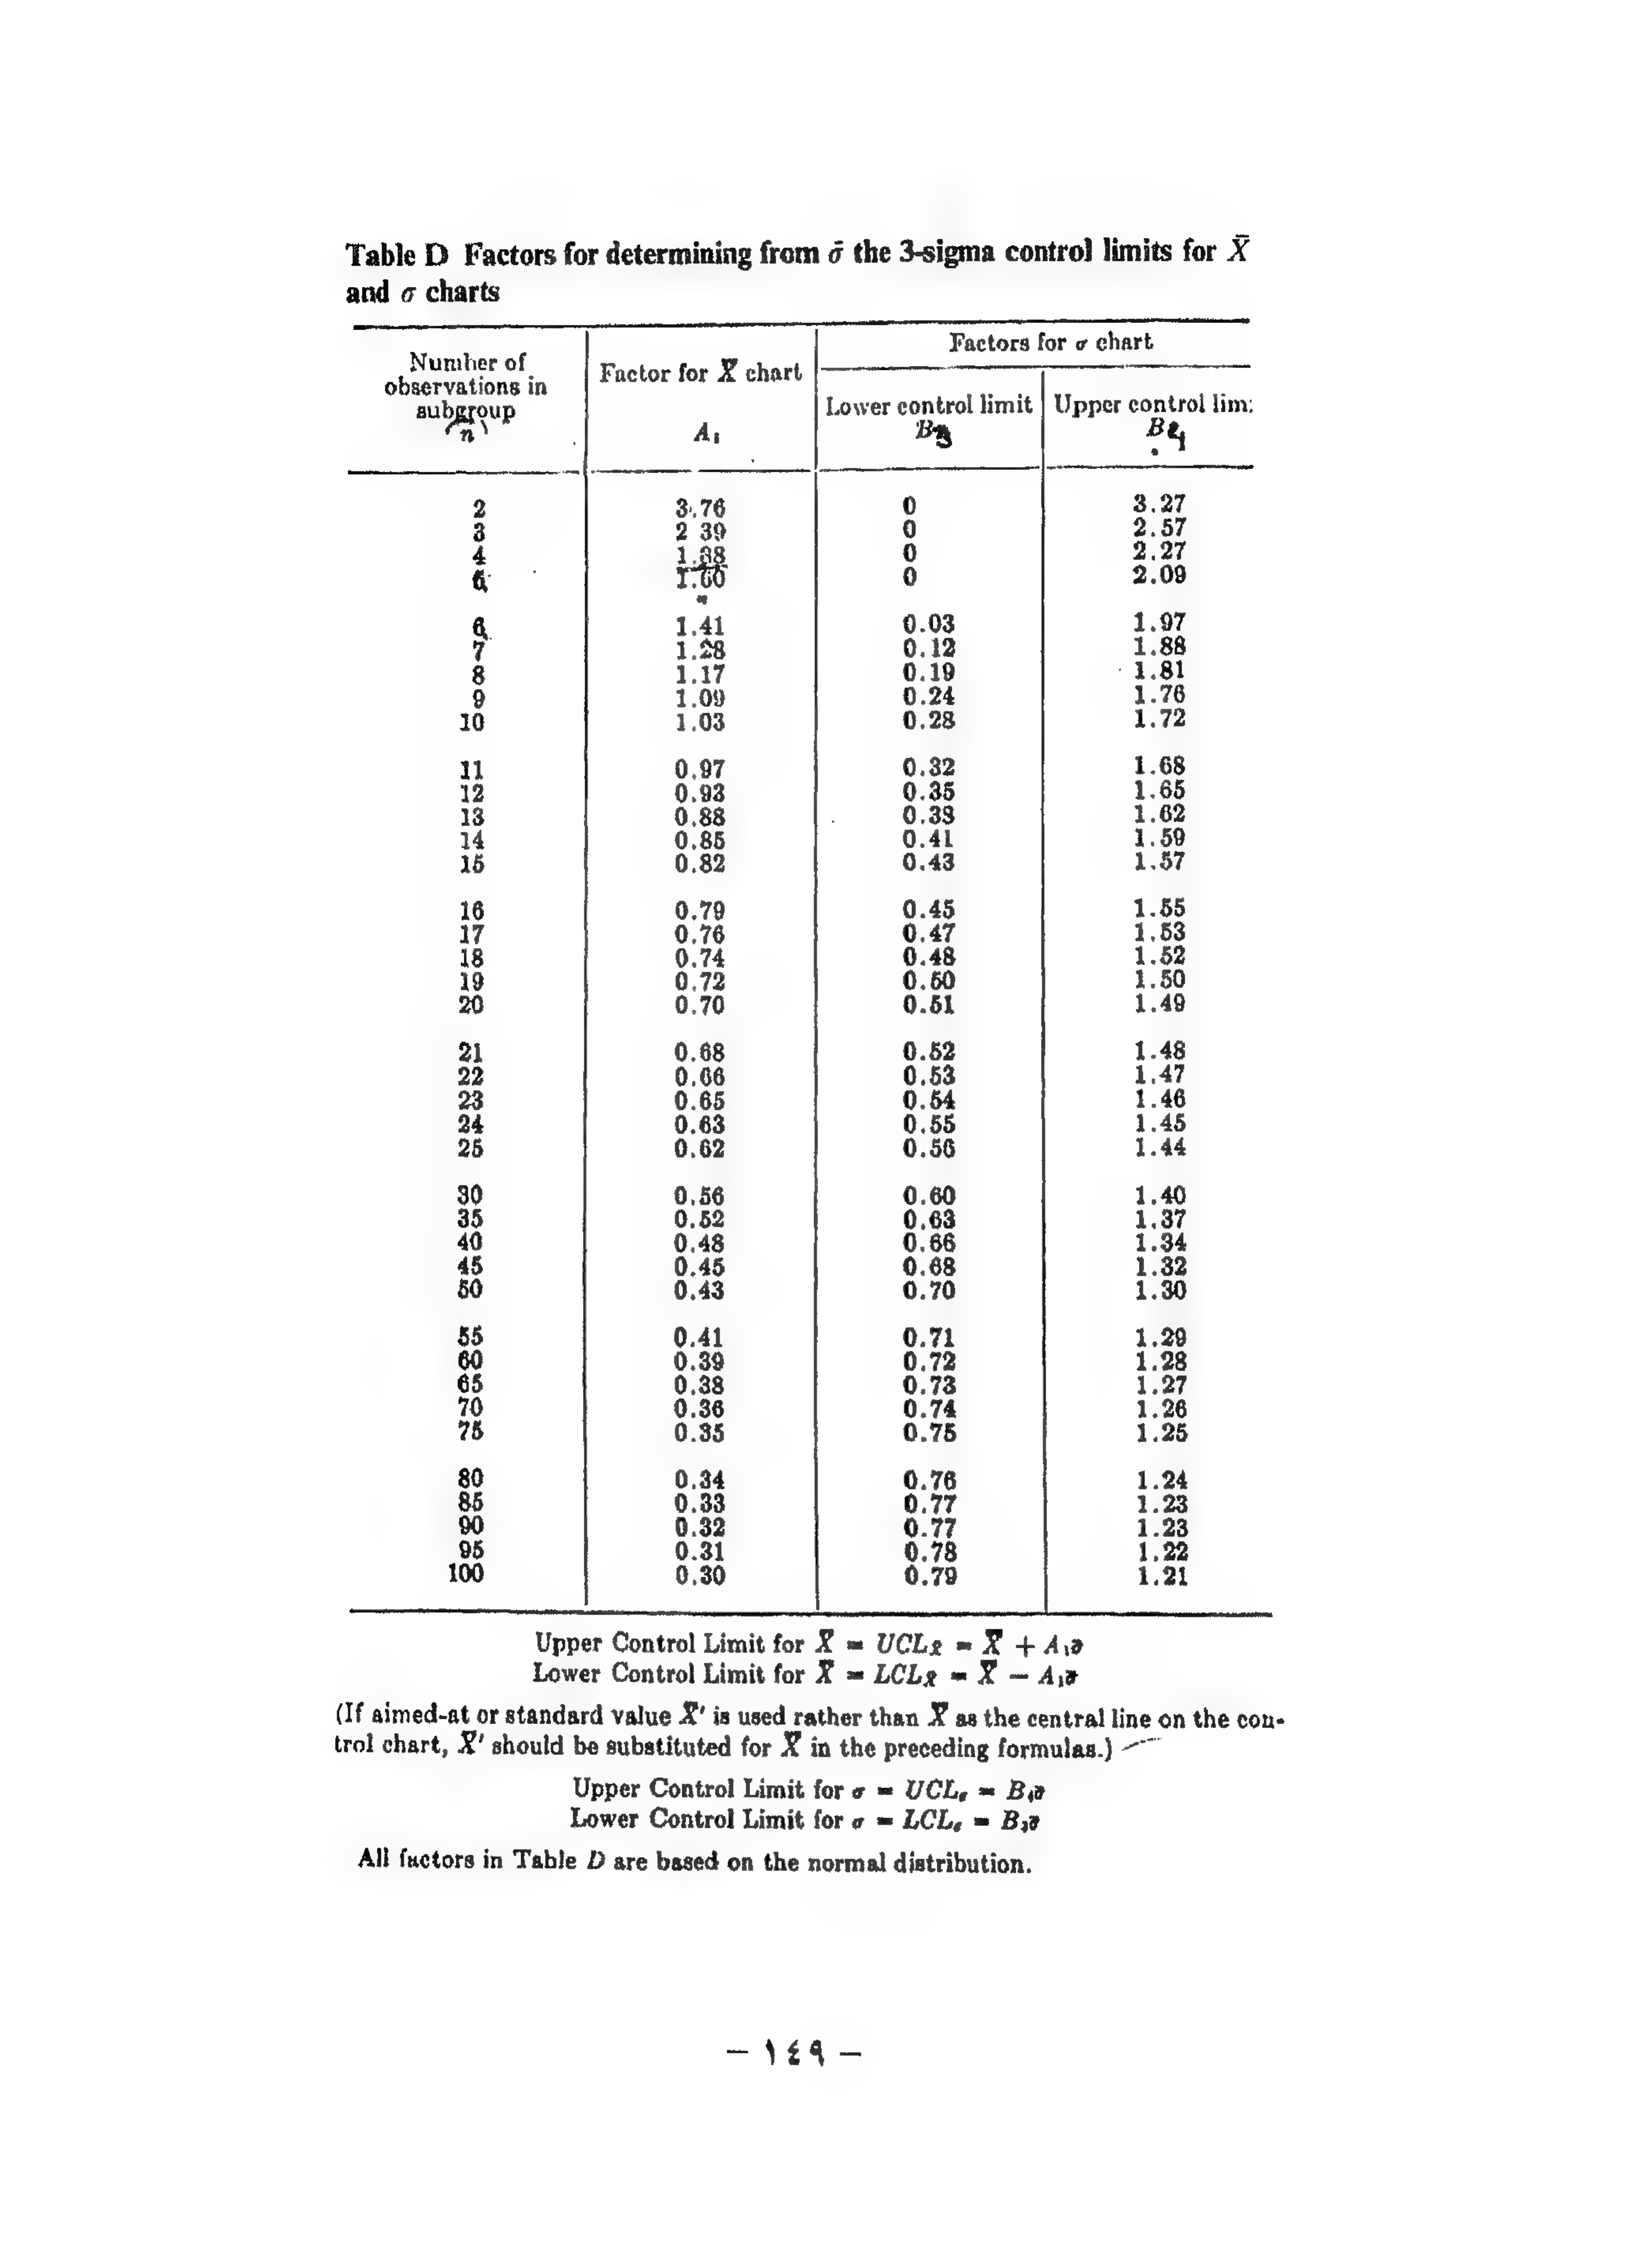 Table D Factors for determining from σ̄ the 3-sigma control limits for X̄
and σ charts
Number of
observations in
subgroup
n
Factor for X̄ chart
A₁
Factors for σ chart
Lower control limit
B₃
Upper control lim
B₄
2 3.76 0 3.27
3 2 39 0 2.57
4 1.88 0 2.27
5 1.60 0 2.09
6 1.41 0.03 1.97
7 1.28 0.12 1.88
8 1.17 0.19 1.81
9 1.09 0.24 1.76
10 1.03 0.28 1.72
11 0.97 0.32 1.68
12 0.93 0.35 1.65
13 0.88 0.38 1.62
14 0.85 0.41 1.59
15 0.82 0.43 1.57
16 0.79 0.45 1.55
17 0.76 0.47 1.53
18 0.74 0.48 1.52
19 0.72 0.50 1.50
20 0.70 0.51 1.49
21 0.68 0.52 1.48
22 0.66 0.53 1.47
23 0.65 0.54 1.46
24 0.63 0.55 1.45
25 0.62 0.56 1.44
30 0.56 0.60 1.40
35 0.52 0.63 1.37
40 0.48 0.66 1.34
45 0.45 0.68 1.32
50 0.43 0.70 1.30
55 0.41 0.71 1.29
60 0.39 0.72 1.28
65 0.38 0.73 1.27
70 0.36 0.74 1.26
75 0.35 0.75 1.25
80 0.34 0.76 1.24
85 0.33 0.77 1.23
90 0.32 0.77 1.23
95 0.31 0.78 1.22
100 0.30 0.79 1.21
Upper Control Limit for X̄ = UCLx̄ = X̿ + A₁σ̄
Lower Control Limit for X̄ = LCLx̄ = X̿ − A₁σ̄
(If aimed-at or standard value X̄′ is used rather than X̿ as the central line on the con-
trol chart, X̄′ should be substituted for X̿ in the preceding formulas.)
Upper Control Limit for σ = UCLσ = B₄σ̄
Lower Control Limit for σ = LCLσ = B₃σ̄
All factors in Table D are based on the normal distribution.
– ١٤٩ –